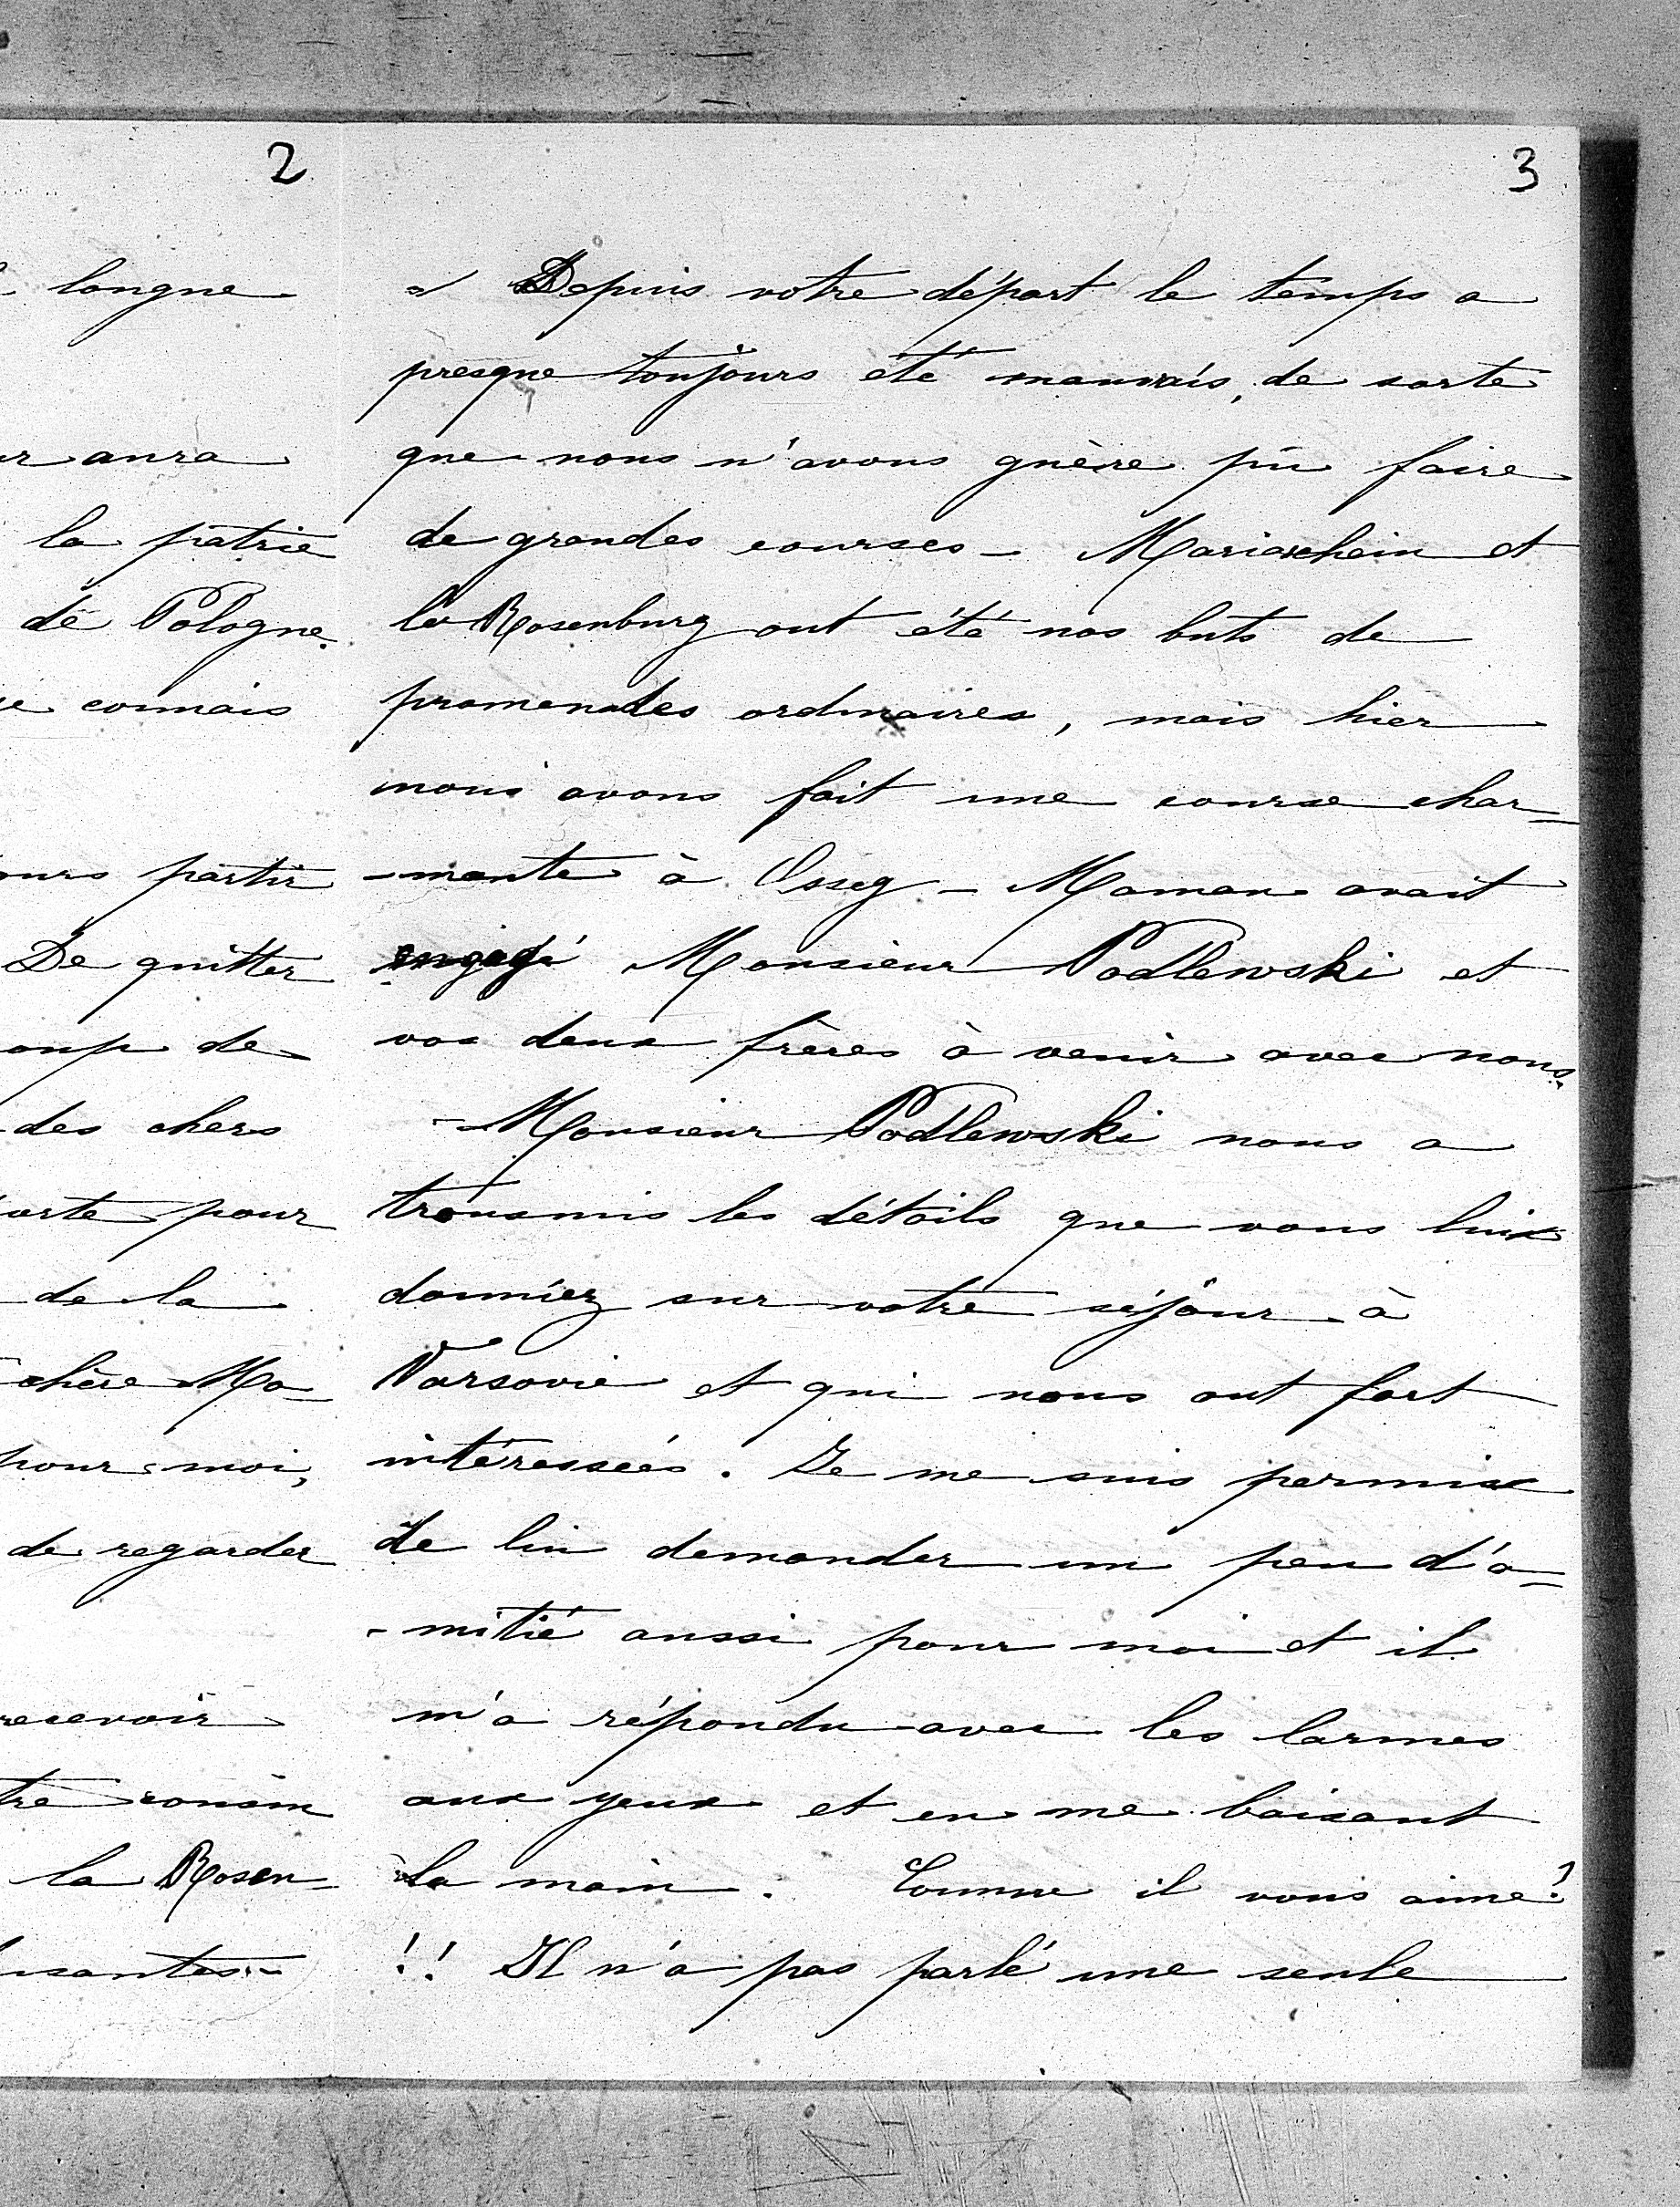 2
longue
aura
la patrie
de Pologne.
connais
partir
De quitter
de
des chers
pour
de la
chère Ma-
pour moi,
de regarder
recevoir
cousin
la Rosen-
3
Depuis votre départ le temps a
presque toujours été mauvais, de sorte
que nous n'avons guère pu faire
de grandes courses - Mariaschein et
la Rosenburg ont été nos buts de
promenades ordinaires, mais hier
nous avons fait une course char=
-mante à Osseg - Maman avait
engagé Monsieur Podlewski et
vos deux frères à venir avec nous.
- Monsieur Podlewski nous a
transmis les détails que vous lui
donniez sur votre séjour à
Varsovie et qui nous ont fort
intéressées. Je me suis permise
de lui demander un peu d'a=
-mitié aussi pour moi et il
m'a répondu avec les larmes
aux yeux et en me baisant
la main. Comme il vous aime!
!! Il n'a pas parlé une seule